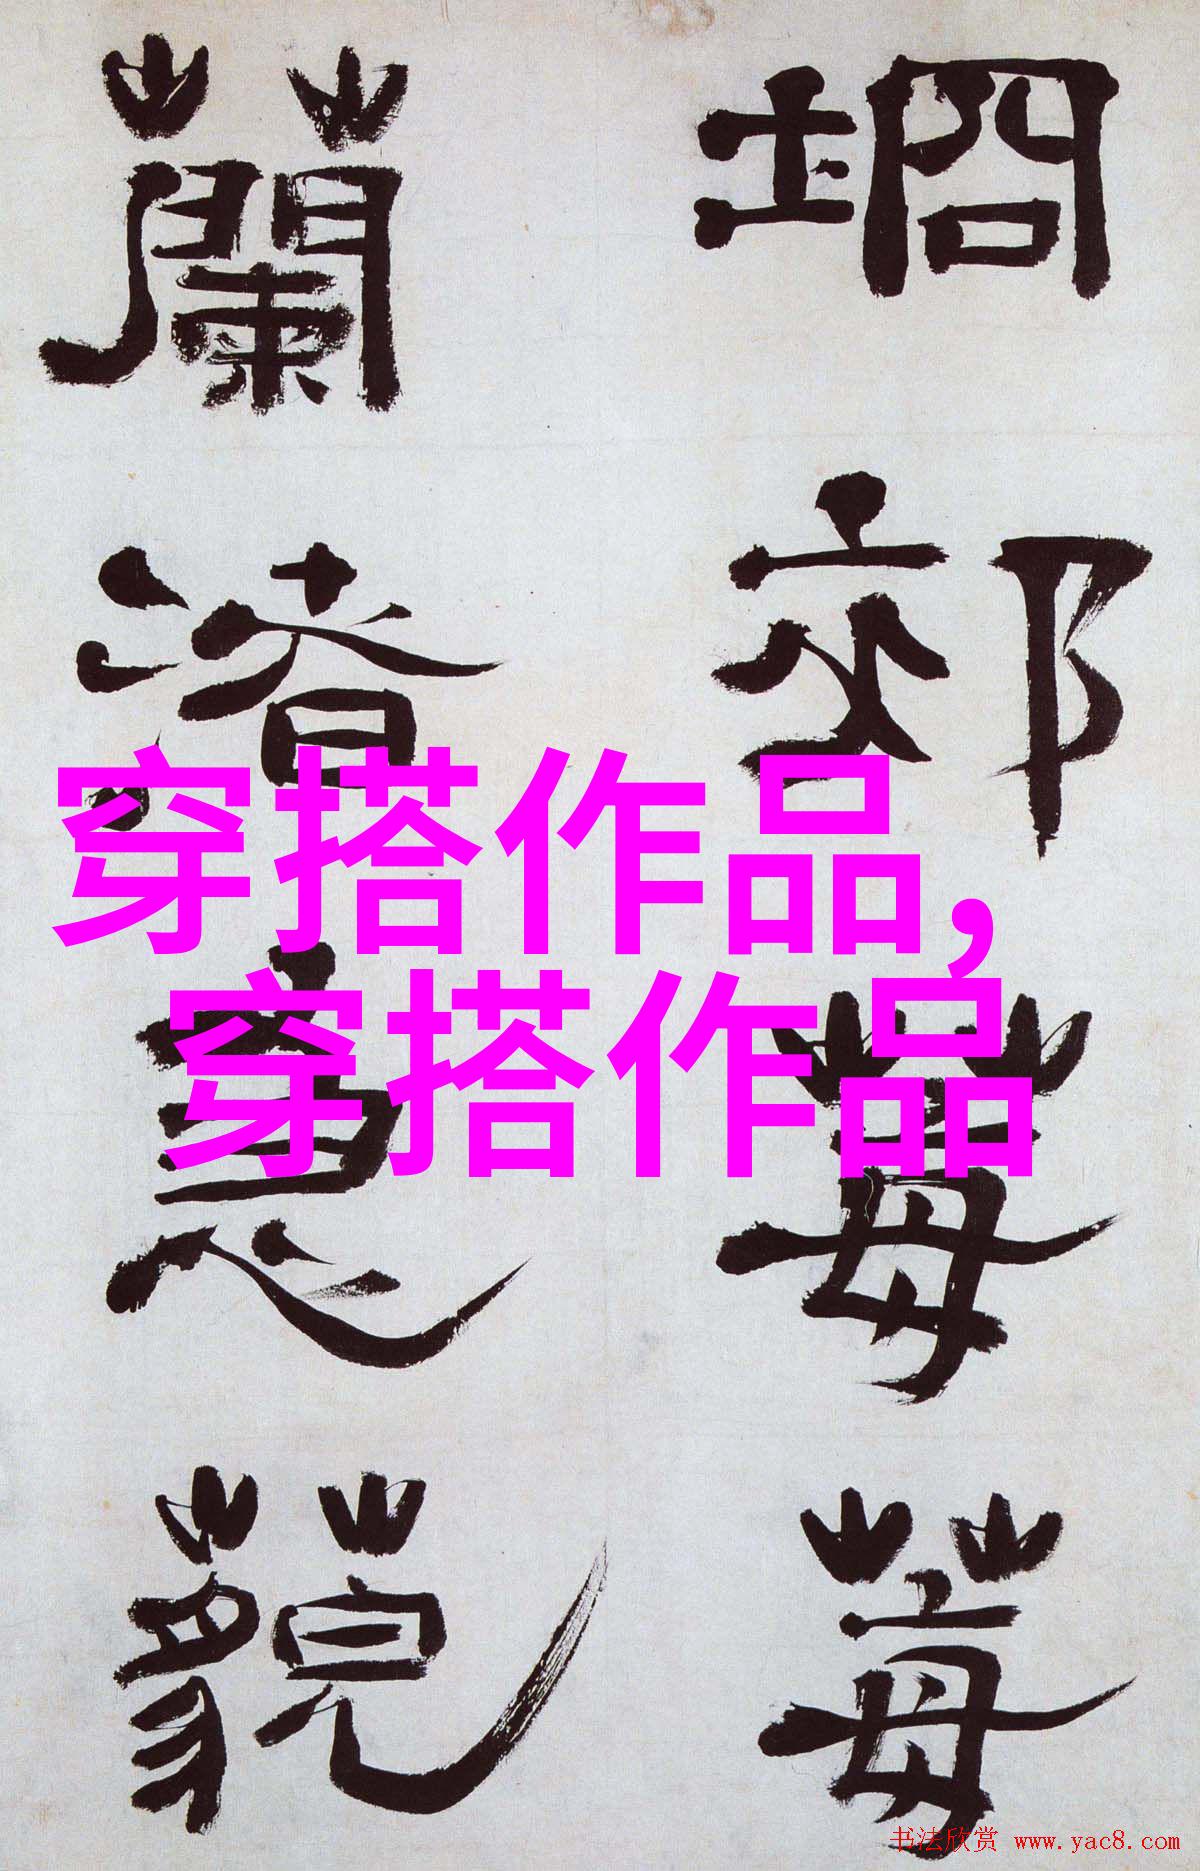 埛郊莓莓
蘭渚藐
穿搭作品,
穿搭作品
书法欣赏 www.yac8.com